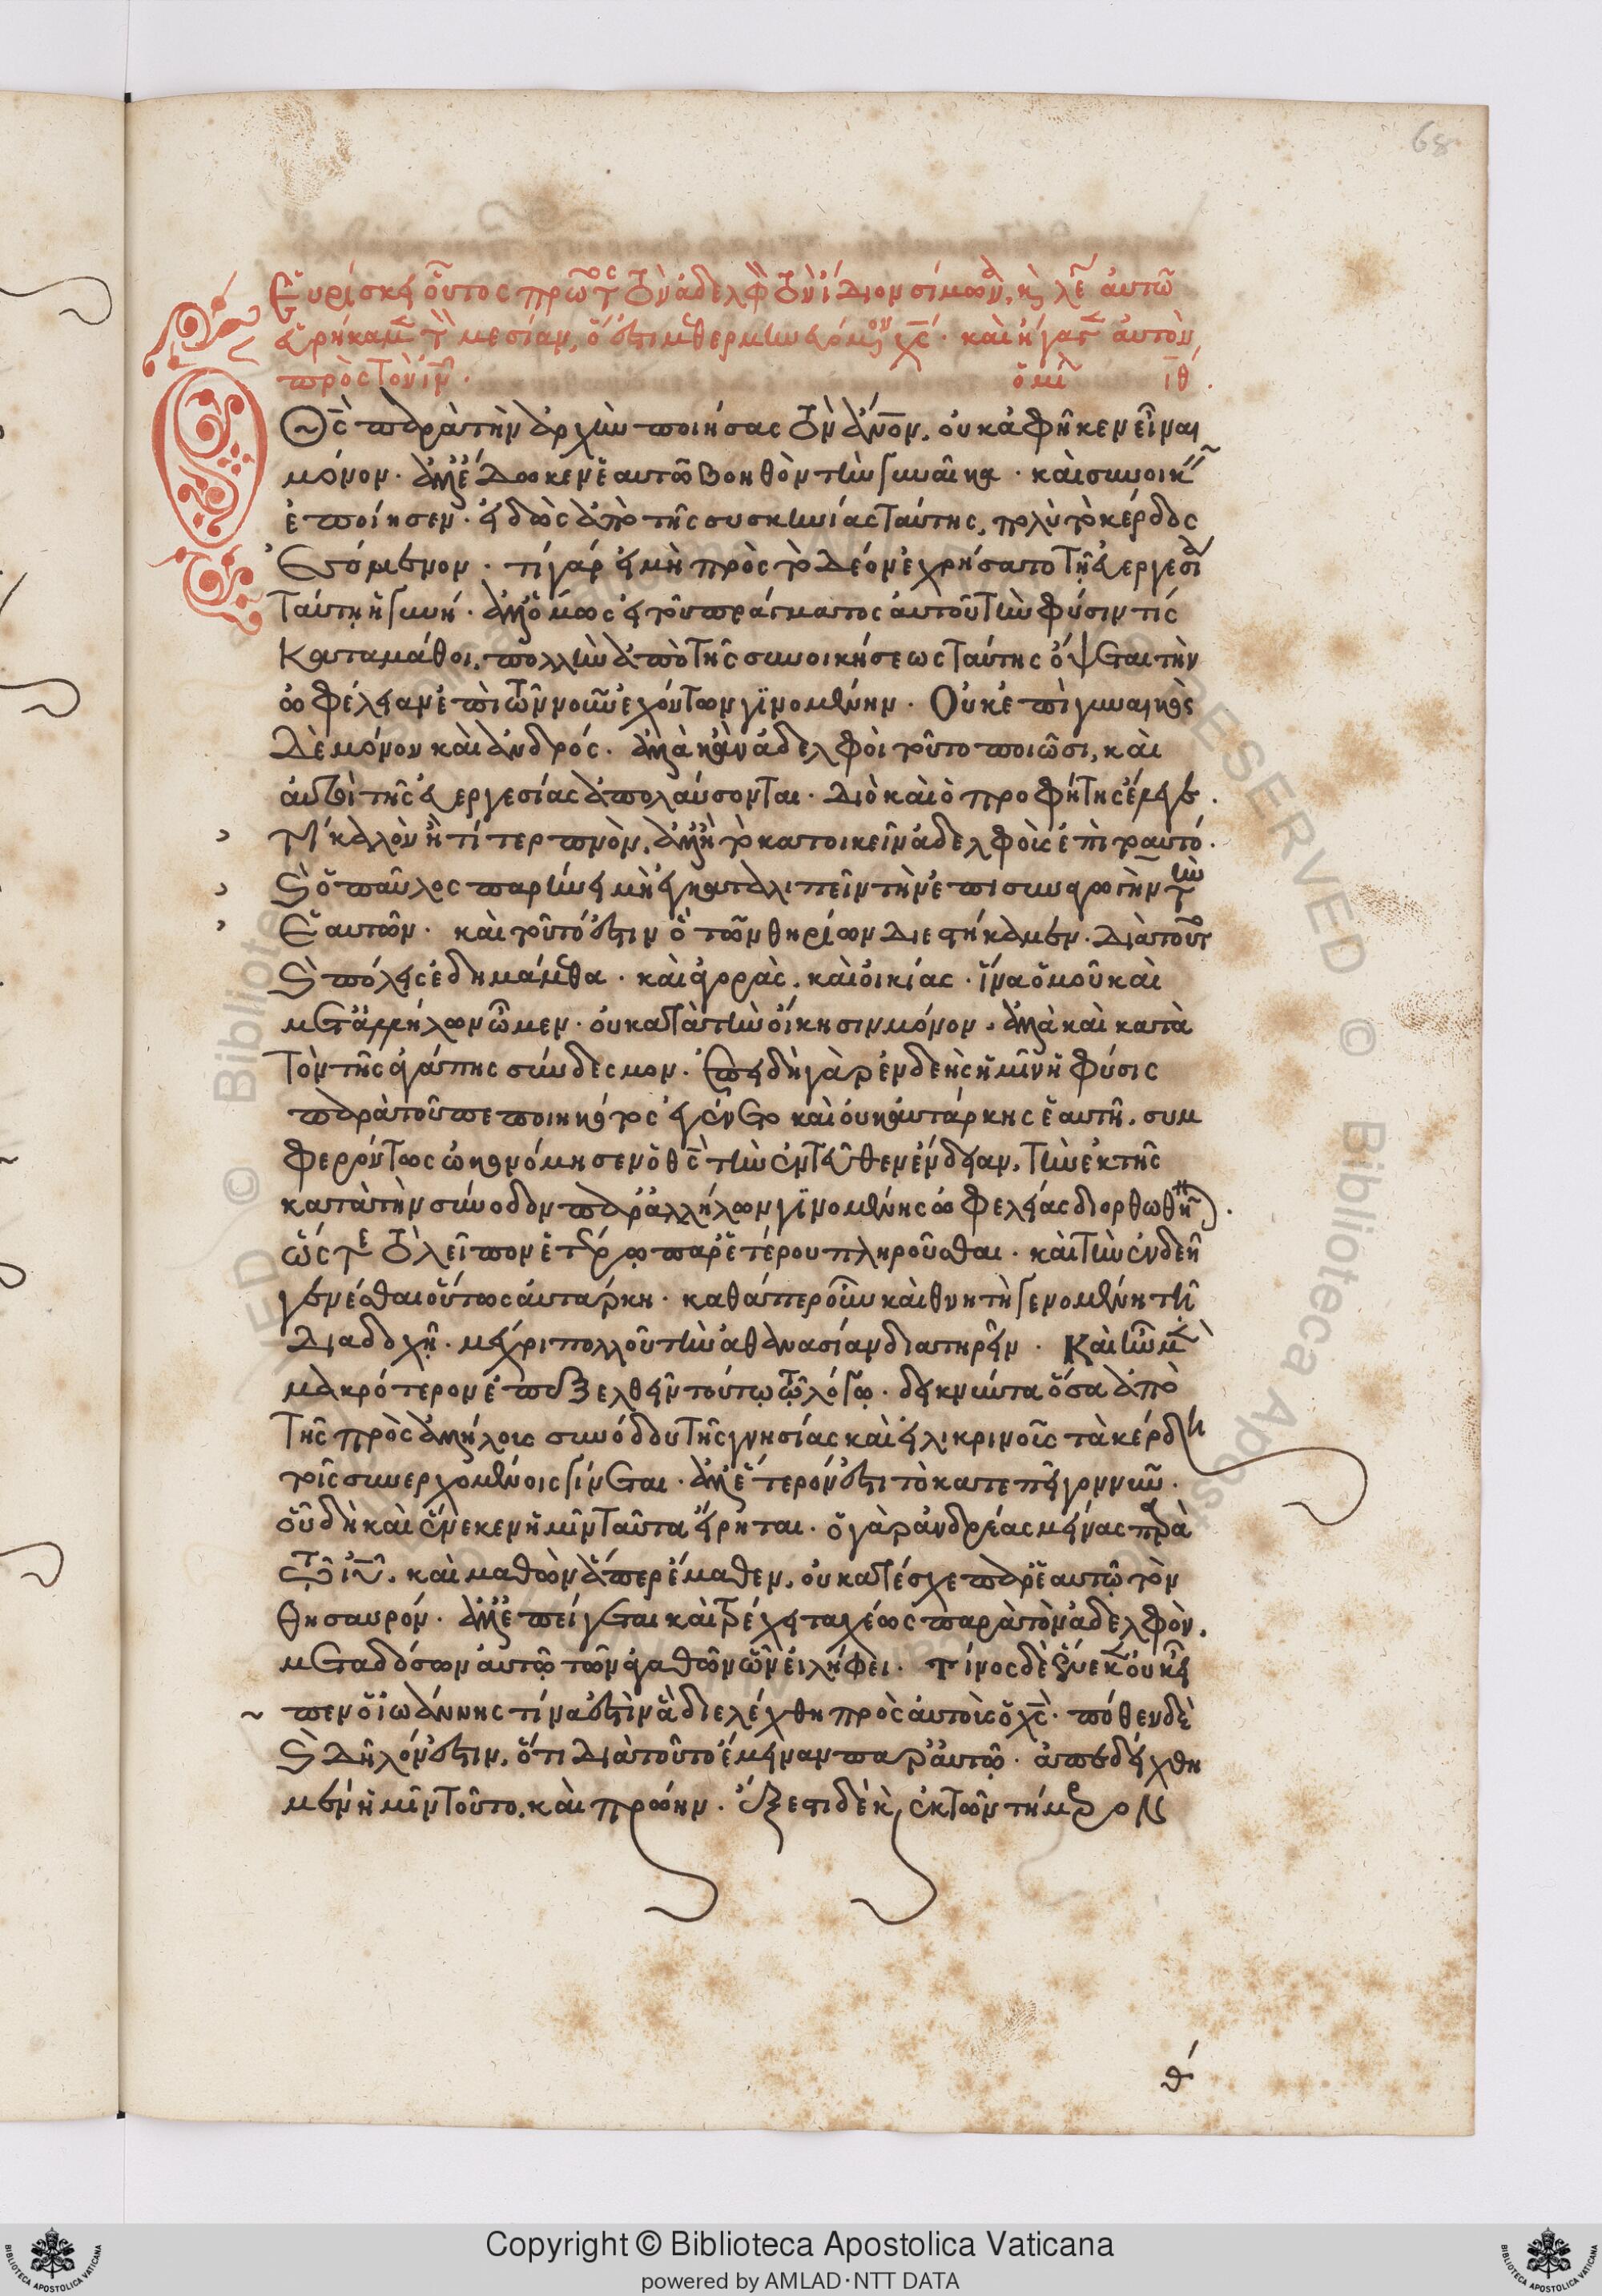 68
Εὑρίσκει οὗτος πρῶτος τὸν ἀδελφὸν τὸν ἴδιον σίμωνα, καὶ λέγει αὐτῶ
εὑρήκαμεν τὸν μεσίαν, ὅ ἐστι μεθερμηνευόμενον χς. καὶ ἤγαγεν αὐτὸν
πρὸς τὸν ιν. ὁμιλ ιθ.
Ο θς παρὰ τὴν ἀρχὴν ποιήσας τὸν ἄνον, οὐκ ἀφῆκεν εἶναι
μόνον. ἀλλ' ἔδωκεν ἑαυτῶ βοηθὸν τὴν γυναῖκα. καὶ συνοικεῖν
ἐποίησεν. εἰδὼς ἀπὸ τῆς συσκηνίας ταύτης, πολὺ τὸ κέρδος
ἐσόμενον. τί γὰρ εἰ μὴ πρὸς τὸ δέον ἐχρήσατο τῇ εὐεργεσίᾳ
ταύτῃ ἡ γυνή. ἀλλ' ὅμως εἰ τοῦ πράγματος αὐτοῦ τὴν φύσιν τίς
καταμάθοι, πολλὴν ἀπὸ τῆς συνοικήσεως ταύτης ὄψεται τὴν
ὠφέλειαν ἐπὶ τῶν νοῦν ἐχόντων γινομένην. Οὐκ ἐπὶ γυναικὸς
δὲ μόνον καὶ ἀνδρός. ἀλλὰ κἂν ἀδελφοὶ τοῦτο ποιῶσι, καὶ
αὐτοὶ τῆς εὐεργεσίας ἀπολαύσονται. διὸ καὶ ὁ προφήτης ἔλεγεν.
Τί καλὸν ἢ τί τερπνὸν, ἀλλ' ἢ τὸ κατοικεῖν ἀδελφοὺς ἐπὶ τὸ αὐτό.
καὶ ὁ παῦλος παρῄνει μὴ ἐγκαταλιπεῖν τὴν ἐπισυναγωγὴν τὴν
ἑαυτῶν. καὶ τοῦτό ἐστιν ὃ τῶν θηρίων διεστήκαμεν. διὰ τοῦτο
καὶ πόλεις ἐδειμάμεθα. καὶ ἀγορὰς. καὶ οἰκίας. ἵνα ὁμοῦ καὶ
μετ' ἀλλήλων ὦμεν. οὐ κατὰ τὴν οἴκησιν μόνον, ἀλλὰ καὶ κατὰ
τὸν τῆς ἀγάπης σύνδεσμον. ἐπειδὴ γὰρ ἐνδεὴς ἡμῖν ἡ φύσις
παρὰ τοῦ πεποιηκότος ἐγένετο καὶ οὐκ αὐτάρκης ἑαυτῇ. συμ
φερόντως ὠκονόμησεν ὁ θς τὴν ἐντεῦθεν ἔνδειαν, τὴν ἐκ τῆς
κατὰ τὴν σύνοδον παρ' ἀλλήλων γινομένης ὠφελείας διορθωθῆναι.
ὥς τε τὸ λεῖπον ἑτέρῳ παρ' ἑτέρου πληροῦσθαι. καὶ τὴν ἐνδεῆ
γενέσθαι οὕτως αὐτάρκη. καθάπερ οὖν καὶ θνητὴ γενομένη τῇ
διαδοχῇ. μέχρι πολλοῦ τὴν ἀθανασίαν διατηρεῖν. Καὶ ἦν μὲν
μακρότερον ἐπεξελθεῖν τούτῳ τῷ λόγῳ. δεικνύντα ὅσα ἀπὸ
τῆς πρὸς ἀλλήλους συνόδου τῆς γνησίας καὶ εἰλικρινοῦς τὰ κέρδη
τοῖς συνερχομένοις γίνεται. ἀλλ' ἕτερόν ἐστι τὸ κατεπεῖγον νῦν.
οὗ δὴ καὶ ἕνεκεν ἡμῖν ταῦτα εἴρηται. ὁ γὰρ ἀνδρέας μείνας παρὰ
τῷ ιυ. καὶ μαθὼν ἅπερ ἔμαθεν, οὐ κατέσχε παρ' ἑαυτῷ τὸν
θησαυρόν. ἀλλ' ἐπείγεται καὶ τρέχει ταχέως παρὰ τὸν ἀδελφὸν.
μεταδώσων αὐτῷ τῶν ἀγαθῶν ὧν εἰλήφει. Τίνος δὲ ἕνεκεν οὐκ εἶ
πεν ὁ ἰωάννης τίνα ἐστὶν ἃ διελέχθη πρὸς αὐτοὺς ὁ χς. πόθεν δὲ
καὶ δῆλόν ἐστιν, ὅτι διὰ τοῦτο ἔμειναν παρ' αὐτῷ. ἀπεδείχθη
μὲν ἡμῖν τοῦτο, καὶ πρώην. ἔξεστι δὲ καὶ ἐκ τῶν τήμερον
θ'
Copyright © Biblioteca Apostolica Vaticana
powered by AMLAD·NTT DATA